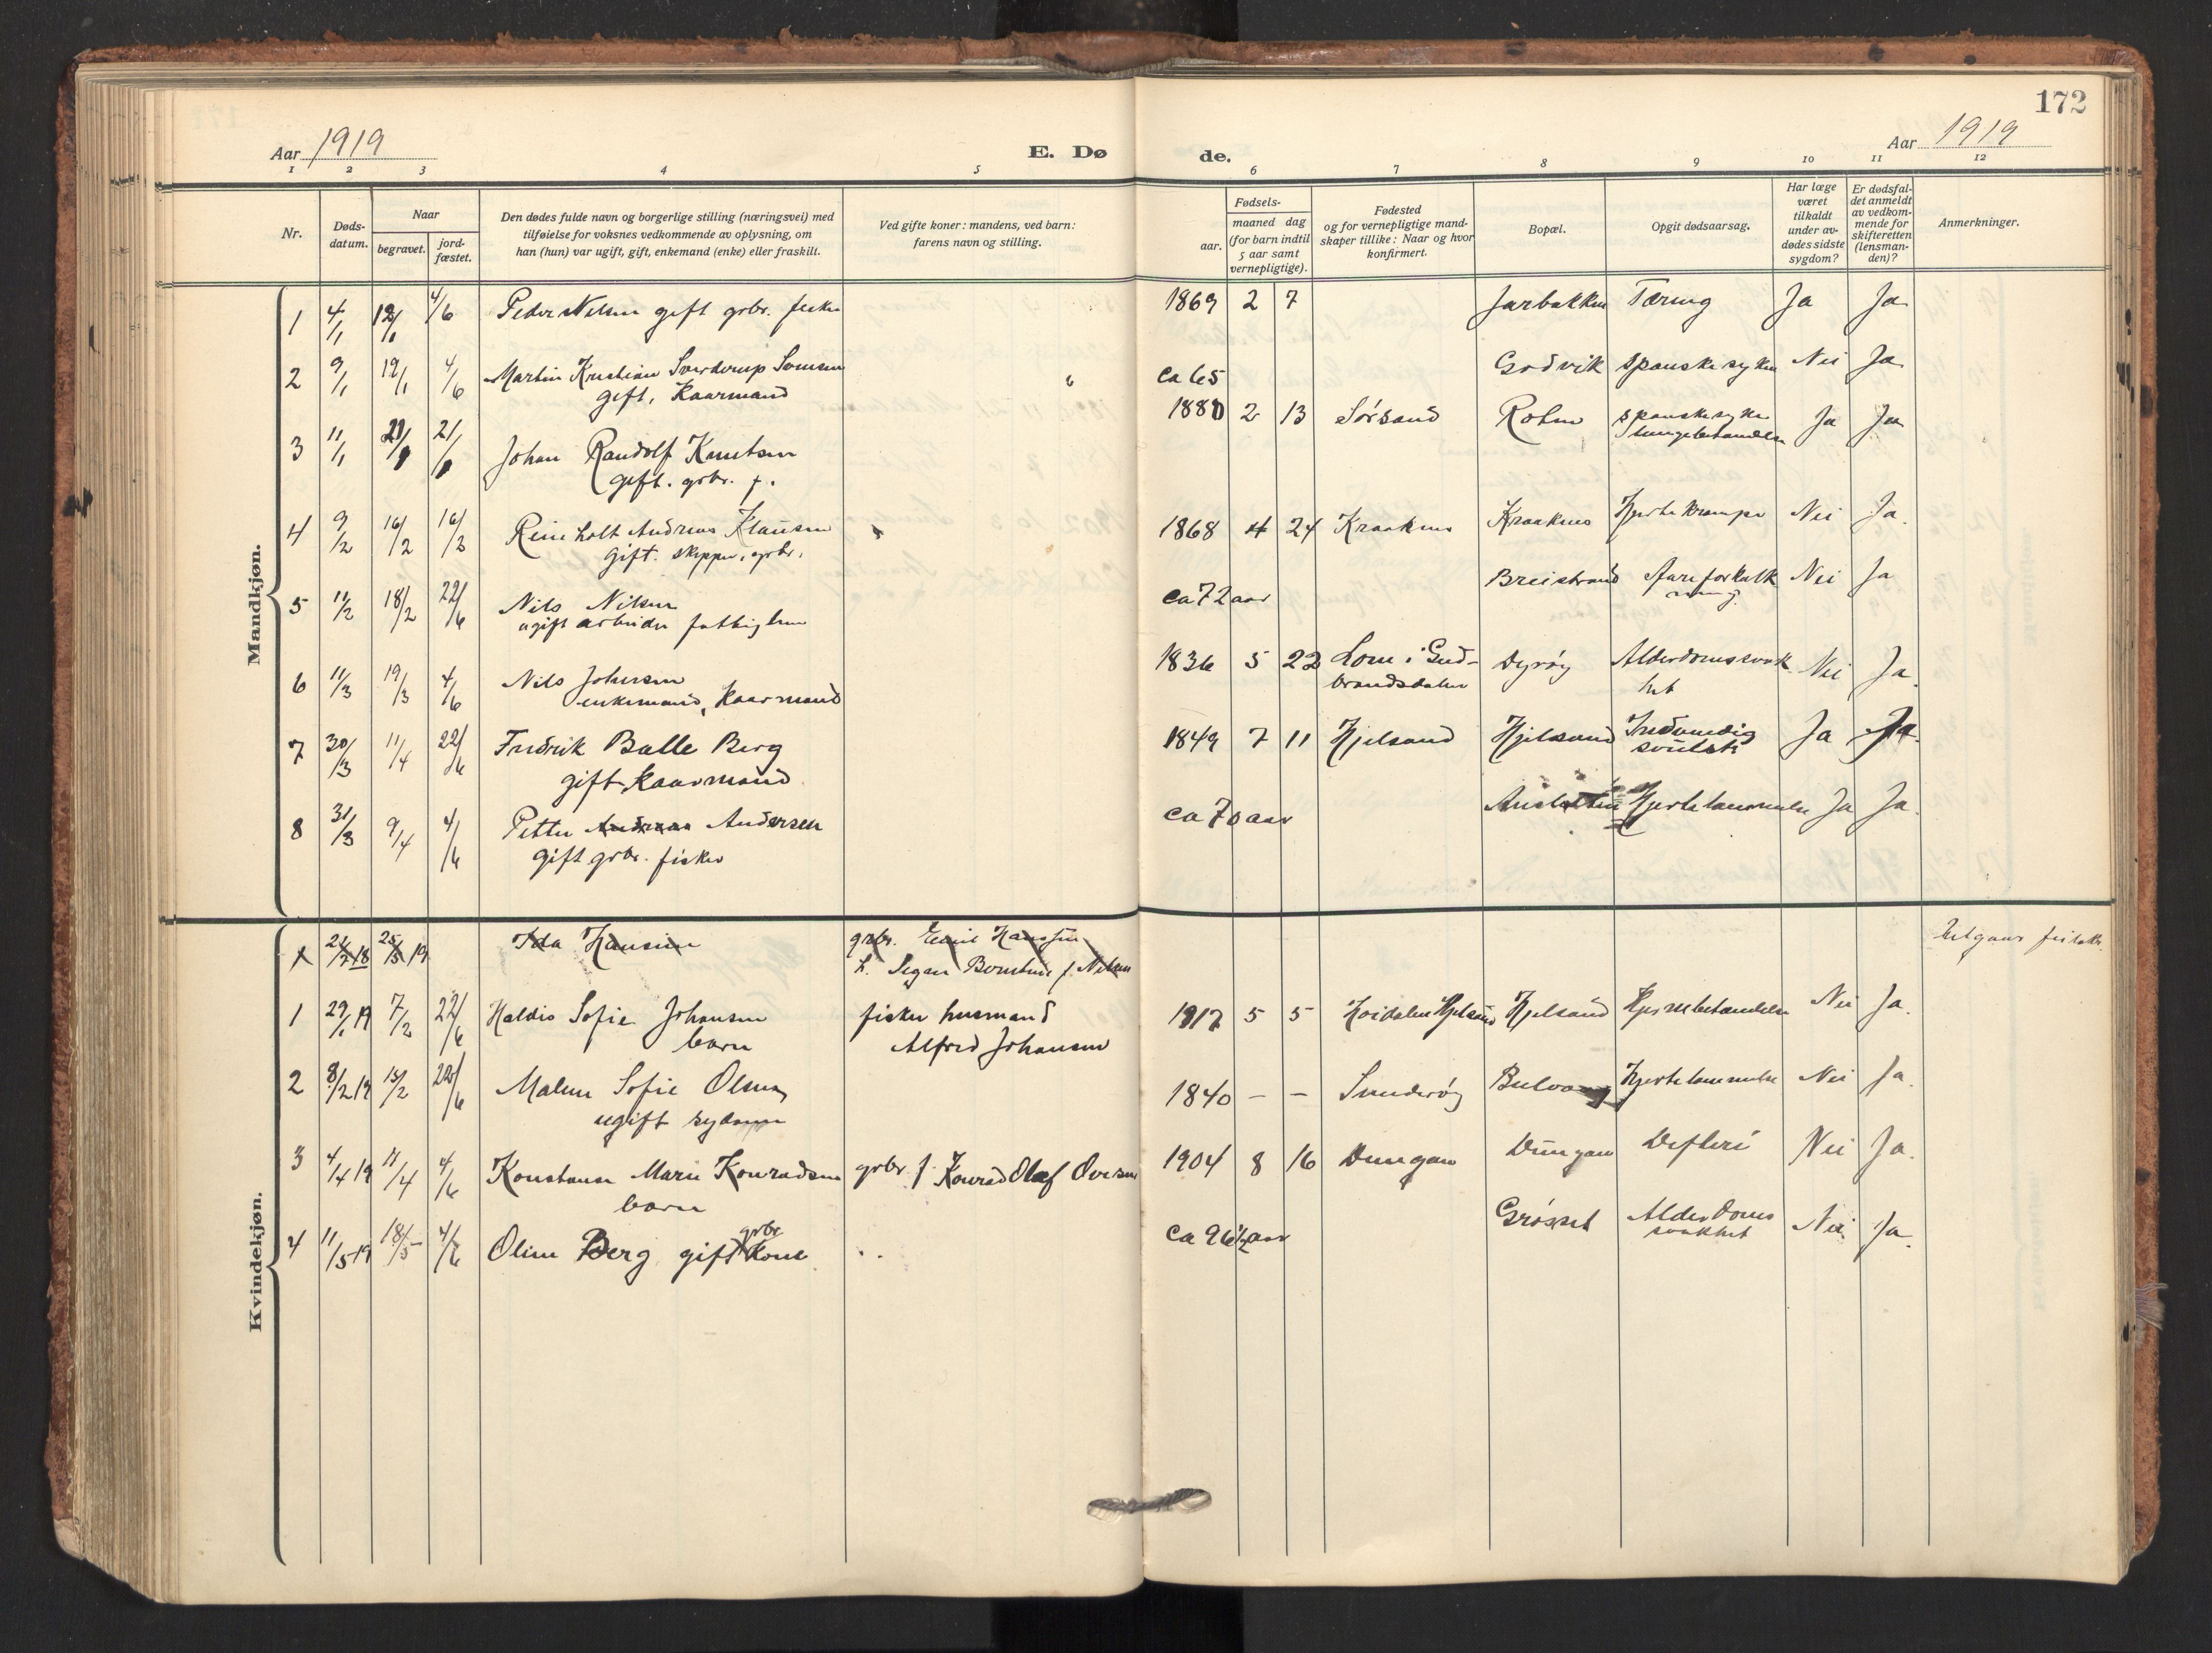 172
Aar 1919
E. Dø de.
Aar 1919
1 2 3 4 5 6 7 8 9 10 11 12
Nr.
Døds-
datum.
Naar
begravet.
jord-
fæstet.
Den dødes fulde navn og borgerlige stilling (næringsvei) med
tilføielse for voksnes vedkommende av oplysning, om
han (hun) var ugift, gift, enkemand (enke) eller fraskilt.
Ved gifte koner: mandens, ved barn:
farens navn og stilling.
Fødsels-
aar.
maaned dag
(for barn indtil
5 aar samt
vernepligtige).
Fødested
og for vernepligtige mand-
skaper tillike: Naar og hvor
konfirmert.
Bopæl.
Opgit dødsaarsag.
Har læge
været
tilkaldt
under av-
dødes sidste
sygdom?
Er dødsfal-
det anmeldt
av vedkom-
mende for
skifteretten
(lensman-
den)?
Anmerkninger.
Mandkjøn.
1 4/1 4/6 Peder Nilsen gift grbr. fisker 1869 2 7 Jarbakken Tæring Ja Ja
2 9/1 19/1 4/6 Martin Kristian Sverdrup ca 65 Godvik spanske syken Nei Ja
gift, Kaarmand
3 11/1 Johan Randolf Knutsen 1880 2 13 Sørsand spanske syke Ja Ja
gift. grbr. f.
4 9/2 16/2 16/2 Reinholt Andreas Klausen 1868 4 24 Kraaknes Kraaknes Hjertekrampe Nei Ja.
Gift. skipper, grbr.
5 11/2 18/2 22/6 Nils Nilsen ca 72 aar Breistrand Aareforkalk Nei Ja
ugift arbeider fattiglem ning.
6 11/3 19/3 4/6 Nils Johnsen 1836 5 22 Lom i Gud- Dyrøy Alderdomssvak Nei Ja.
enkemand, Kaarmand brandsdalen het
7 30/3 11/4 22/6 Fredrik Balle Berg 1849 7 11 Hjelsand Hjelsand Indvendig Ja Ja.
gift Kaarmand svulst
8 31/3 9/4 4/6 Petter Andreas Andersen ca 70 aar Hjertelammelse Ja Ja.
gift grbr. fisker
Kvindekjøn.
1 25/5 19 Ida Hansen grbr. Emil Hanssen
f. Nilsen
1 29/1 19 7/2 22/6 Haldis Sofie Johansen fisker husmand 1917 5 5 Hjelsand Hjelsand Hjernebetændelse Nei Ja.
barn Alfred Johansen
2 8/2 19 15/2 22/6 Malene Sofie Olsen 1840 – – Sunderøy Hjertelammelse Nei Ja.
ugift
3 4/4 19 11/4 4/6 Konstanse Marie Konradsen grbr. f. Konrad Olaf Oversen 1904 8 16 Dungan Dungan Difteri Nei Ja.
barn
4 11/5 19 18/5 4/6 Oline Berg gift grbr Kone . . ca 96 1/2 aar Grøsset Alderdoms Nei Ja.
svakhet